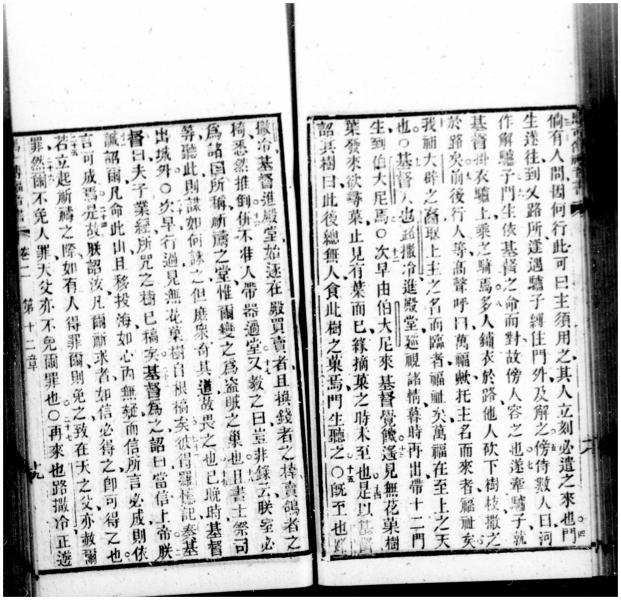 倘有人問因何行此可曰主須用之其人立刻必遣之來也門
生遂往到叉路所逢遇驢子縛住門外及解之傍侍數人曰河
作解驢子門生依基督之命而對故傍人容之也遂牽驢子就
基督掛衣驢上乘之騎焉多人鋪衣於路他人砍下樹枝撒之
於路矣前後行人等高聲呼曰萬福歟托主名而來者福祉矣
我祖大辟之 上主之名而臨者福祉矣萬福在至上之天
也〇基督入也路撒冷進殿堂巡視諸情暮時再出帶十二門
生到伯大尼焉〇次早由伯大尼來基督覺餓遙見無花菓樹
葉發來欲尋菓止見有葉而已緣摘菓之時未至也是以基督
詔其樹曰此後總無人食此樹之菓焉門生聽之〇旣至也路
撒冷基督進殿堂始逐在殿買賣者且換錢者之棹賣鴿者之
椅悉然推倒倂不准人帶器過堂又敎之曰豈非錄云朕室必
爲諸國所稱祈禱之堂惟爾變之爲盜賊之巢也且書士祭司
等聽此則謀如何誅之但庶衆奇其道故畏之也已晚時基督
出城外〇次早行過見無花菓樹自根槁矣彼得羅憶記奏基
督曰夫子葉經所咒之樹已槁矣基督爲之詔曰當信上帝朕
誠詔爾凡命此山且移投海如心內無疑而信所言必成則依
言可成焉是故朕詔汝凡爾祈求者如信必得之卽可得之也
若立起所禱之際如有人得罪爾則免之致在天之父亦赦爾
罪然爾不免人罪天父亦不免爾罪也〇再來也路撒冷正遊
卷二 第十二章 十九